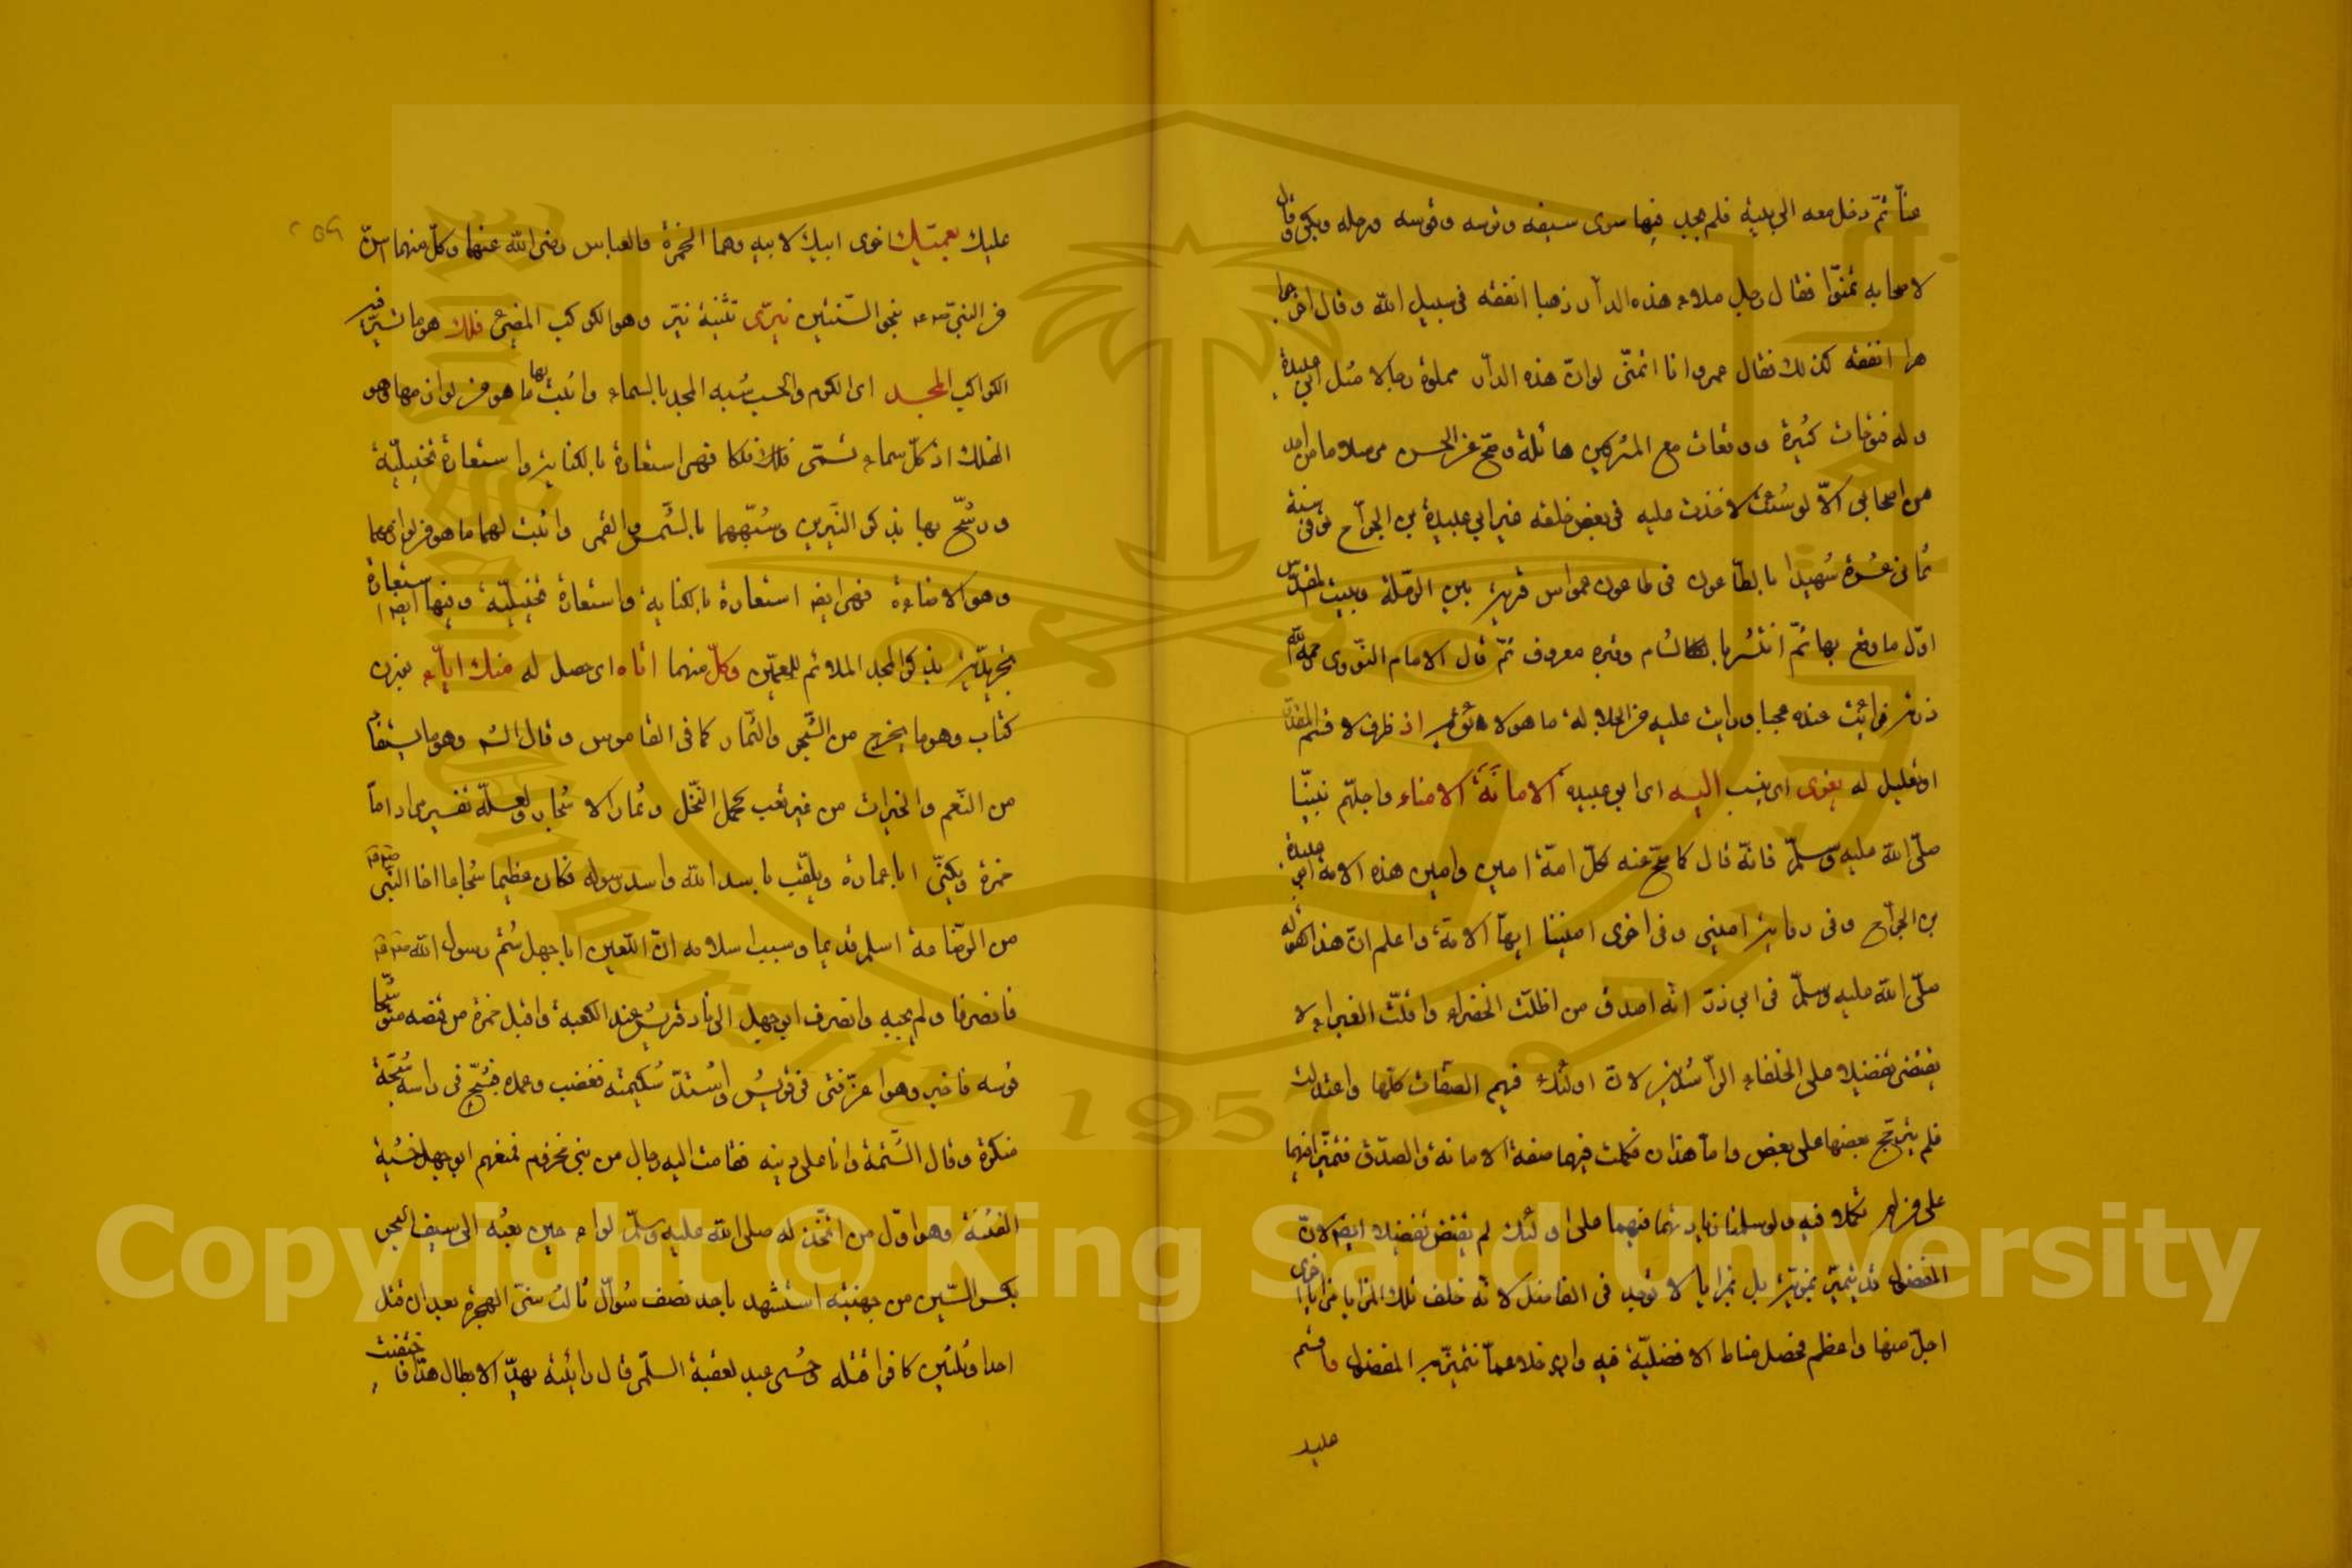 عنا ثمّ دخل معه الى بيته فلم يجد فيها سوى سيفه وترسه وقوسه ورحله وبكى وقال
لاصحابه تمنوّا فقال رجل ملاء هذه الدار ذهبا انفقه فى سبيل الله وقال اخر
انفقه كذلك فقال عمر وانا اتمنّى لو انّ هذه الدار مملوة رجالا مثل ابى عبيدة
وله فتوحات كثيرة ووقعات مع المشركين هائلة وصحّ عن الحسن مرسلا ما من احد
من اصحابى الاّ لو شئت لاخذت عليه فى بعض خلقه غير ابى عبيدة بن الجرّاح توفى سنة
ثمانى عشرة شهيدا بالطّاعون فى طاعون عمواس قرية بين الرّملة وبيت المقدّس
اوّل ما وقع بها ثمّ انتشر بالشام وقبره معروف ثمّ قال الامام النّووى رحمه الله
زرته فرأيت عنده عجبا ورايت عليه من الجلالة ما هو لائق به اذ ظرف لاقسم المقدّر
او تعليل له يعزى اى ينسب اليه اى ابى عبيدة الامانَةَ الامناء واجلّهم نبيّنا
صلّى الله عليه وسلّم فانّه قال كما صحّ عنه لكلّ امّة امين وامين هذه الامة ابى عبيدة
بن الجرّاح وفى رواية امينى وفى اخرى اميننا ايّها الامّة واعلم انّ هذا كقوله
صلّى الله عليه وسلّم فى ابى ذرّ انّه اصدق من اظلّت الخضراء واقلّت الغبراء لا
يقتضى تفضيلا على الخلفاء الرّاشدين لانّ اولئك فيهم الصّفات كلّها واعتدلت
فلم يترجّح بعضها على بعض وامّا هذان فكملت فيهما صفة الامانة والصّدق فتميّزا فيهما
على من لم تكملا فيه ولو سلمنا زيادتهما فيهما على اولئك لم يقتض تفضيلا ايضا لانّ
المفضول قد يتميّز بمزيّة بل بمزايا لا توجد فى الفاضل لانّه خلف تلك المزايا مزايا اخرى
اجلّ منها واعظم فحصل مناط الافضليّة فيه وان خلا عمّا تتميّز به المفضول واقسم
عليك
عليك بعميّك اخوى ابيك لابيه وهما الحمزة والعباس رضى الله عنهما وكلّ منهما اسنّ
من النبىّ صلعم بنحو السّنتين نيرّى تثنية نيّر وهو الكوكب المضىء فلك هو ما تسير فيه
الكواكب المجد اى الكرم والحسب شبه المجد بالسماء واثبت بها ما هو من لوازمها وهو
الفلك اذ كلّ سماء تسمّى فلكا فهى استعارة بالكناية واستعارة تخييليّة
ورشّح بها بذكر النّيرين وشبّههما بالشّمس والقمر واثبت لهما ما هو من لوازمهما
وهو الاضاءة فهى ايضا استعارة بالكناية واستعارة تخييليّة وفيها ايضا استعارة
تجريديّة بذكر المجد الملائم للعمّين وكلّ منهما اتاه اى حصل له منك ايتاء بوزن
كتاب وهو ما يخرج من الشّجر والثّمار كما فى القاموس وقال الش وهو ما يستفاد
من النّعم والخيرات من غير تعب كحمل النّخل وثمار الاشجار ولعلّه تفسير مراد امّا
حمزة ويكنّى ابا عمارة ويلقّب باسد الله واسد رسوله فكان عظيما شجاعا اخا النّبى صلعم
من الرّضاعة اسلم قديما وسبب اسلامه انّ اللّعين ابا جهل شتم رسول الله صلعم
فانصرفا ولم يجبه وانصرف ابو جهل الى ناد قريش عند الكعبة واقبل حمزة من قنصه متوشّحا
قوسه فاخبر وهو اعزّ فتى فى قريش واشتدّ شكيمته فغضب وعمد فشجّ فى راسه شجّة
منكرة وقال اتشتمه وانا على دينه فقامت اليه رجال من بنى مخزوم فمنعهم ابو جهل خشية
الفتنة وهو اوّل من اتّخذ له صلى الله عليه وسلّم لواء حين بعثه الى سيف البحر
بكسر السّين من جهينة استشهد باحد نصف شوّال ثالث سنى الهجرة بعد ان قتل
احدا وثلثين كافرا قتله وحشى عبد لعقبة السلّمى قال رأيته يهدّ الابطال هدّا فاختفيت